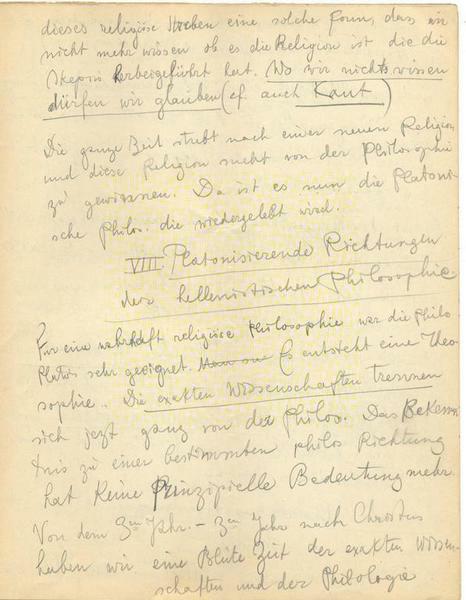 dieses religiöse Streben eine solche Form, dass wir
nicht mehr wissen ob es die Religion ist die die
Skepsis herbeigeführt hat. Wo wir nichts wissen
dürfen wir glauben (cf. auch Kant)
Die ganze Zeit strebt nach einer neuen Religion
und diese Religion sucht von der Philosophie
zu gewinnen. Da ist es nun die Platoni-
sche Philos. die wiedergelebt wird.
VIII. Platonisierende Richtungen
der hellenistischen Philosophie.
Für eine wahrhaft religiöse Philosophie war die Philo
Platos sehr geeignet. Es entsteht eine Theo
sophie. Die exakten Wissenschaften trennen
sich jezt ganz von der Philos. Das Bekennt
nis zu einer bestimmten philos Richtung
hat keine Prinzipielle Bedeutung mehr.
Von dem 3en Jhr. – 3en Jhr nach Christus
haben wir eine Blüte Zeit der exakten Wissen-
schaften und der Philologie